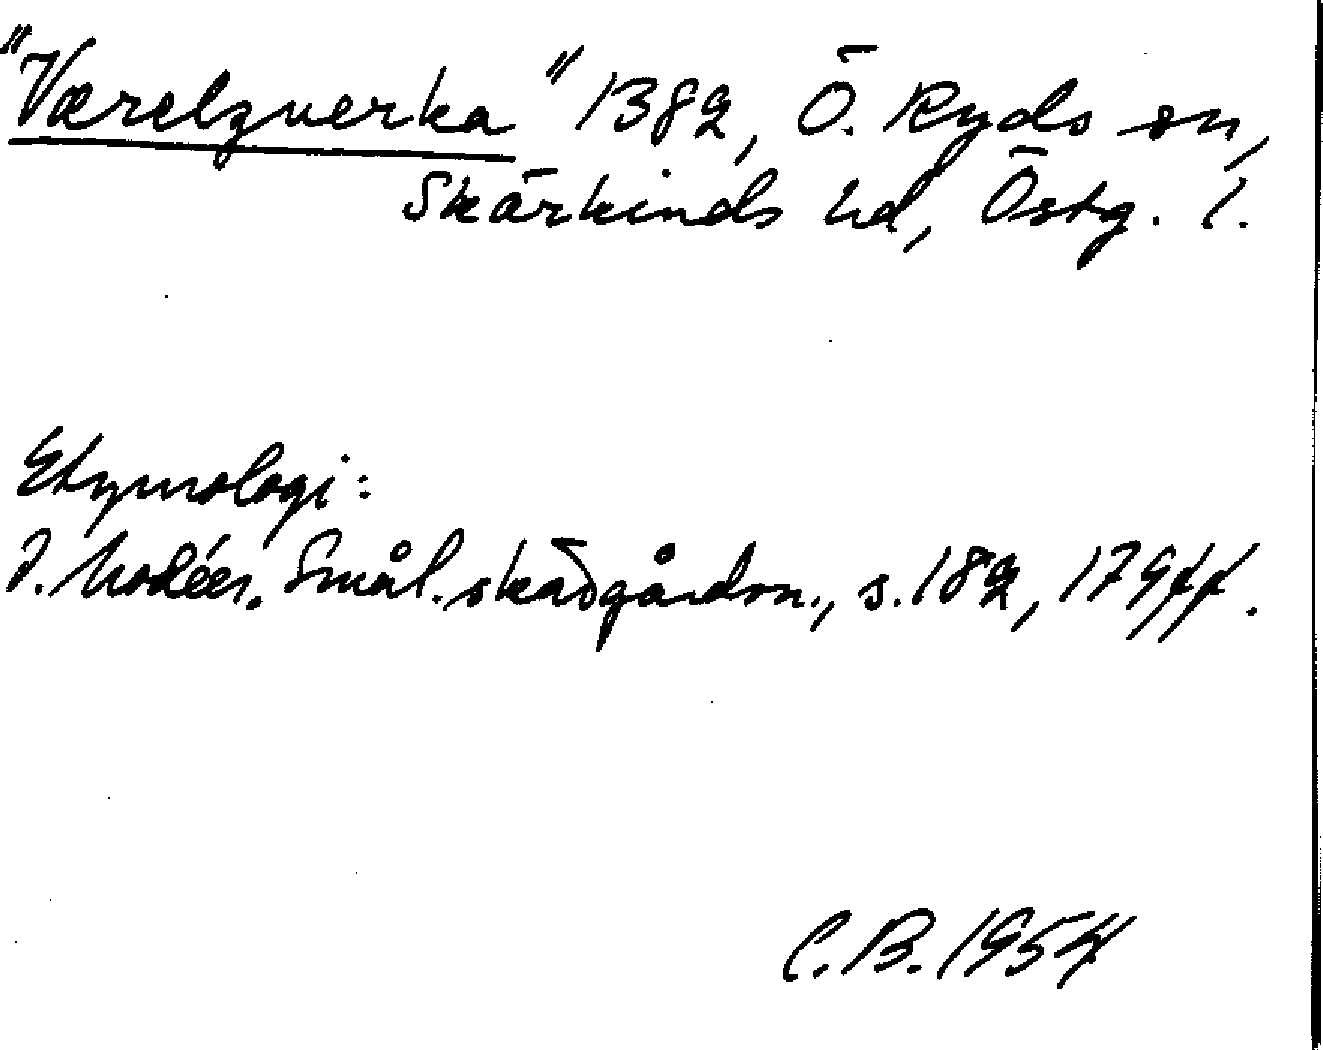 "Værelzuerka" 1382, Ö. Ryds sn,
Skärkinds hd, Östg. l.
Etymologi:
I. Modéer. Smål. skärgårdsn., s. 182, 179ff.
C.B. 1954